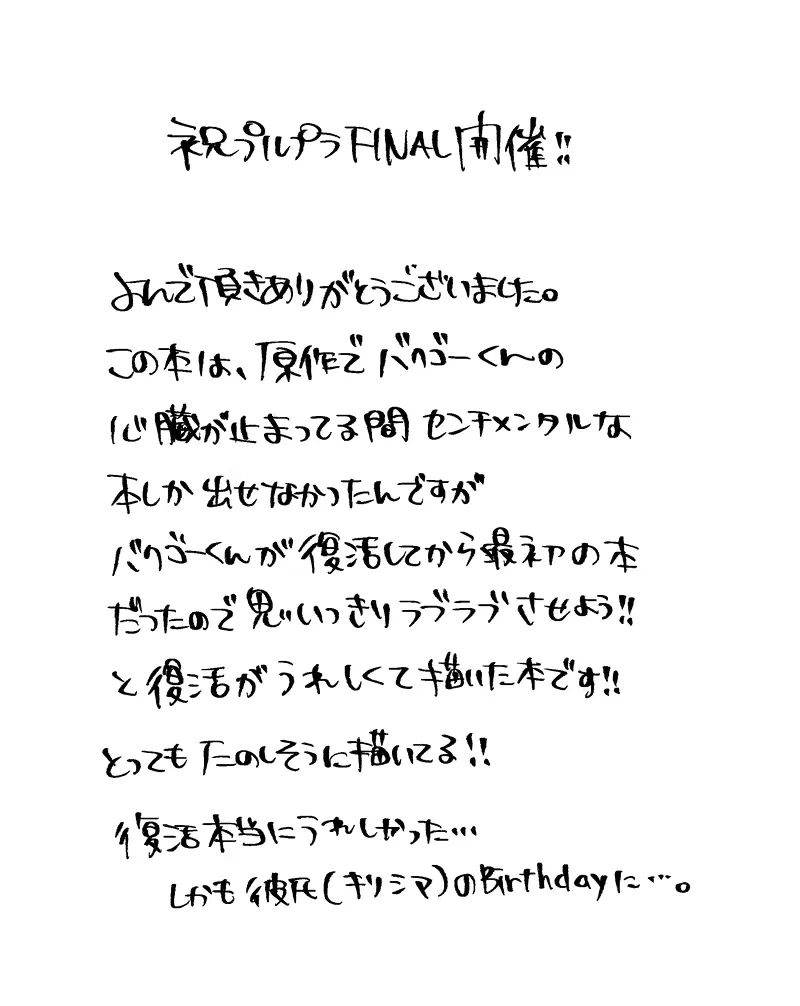 祝プルプラFINAL開催!!
よんで頂きありがとうございました。
この本は、原作でバクゴーくんの
心臓が止まってる間センチメンタルな
本しか出せなかったんですが
バクゴーくんが復活してから最初の本
だったので思いっきりラブラブさせよう!!
と復活がうれしくて描いた本です!!
とってもたのしそうに描いてる!!
復活本当にうれしかった…
しかも彼氏(キリシマ)のBirthdayに…。